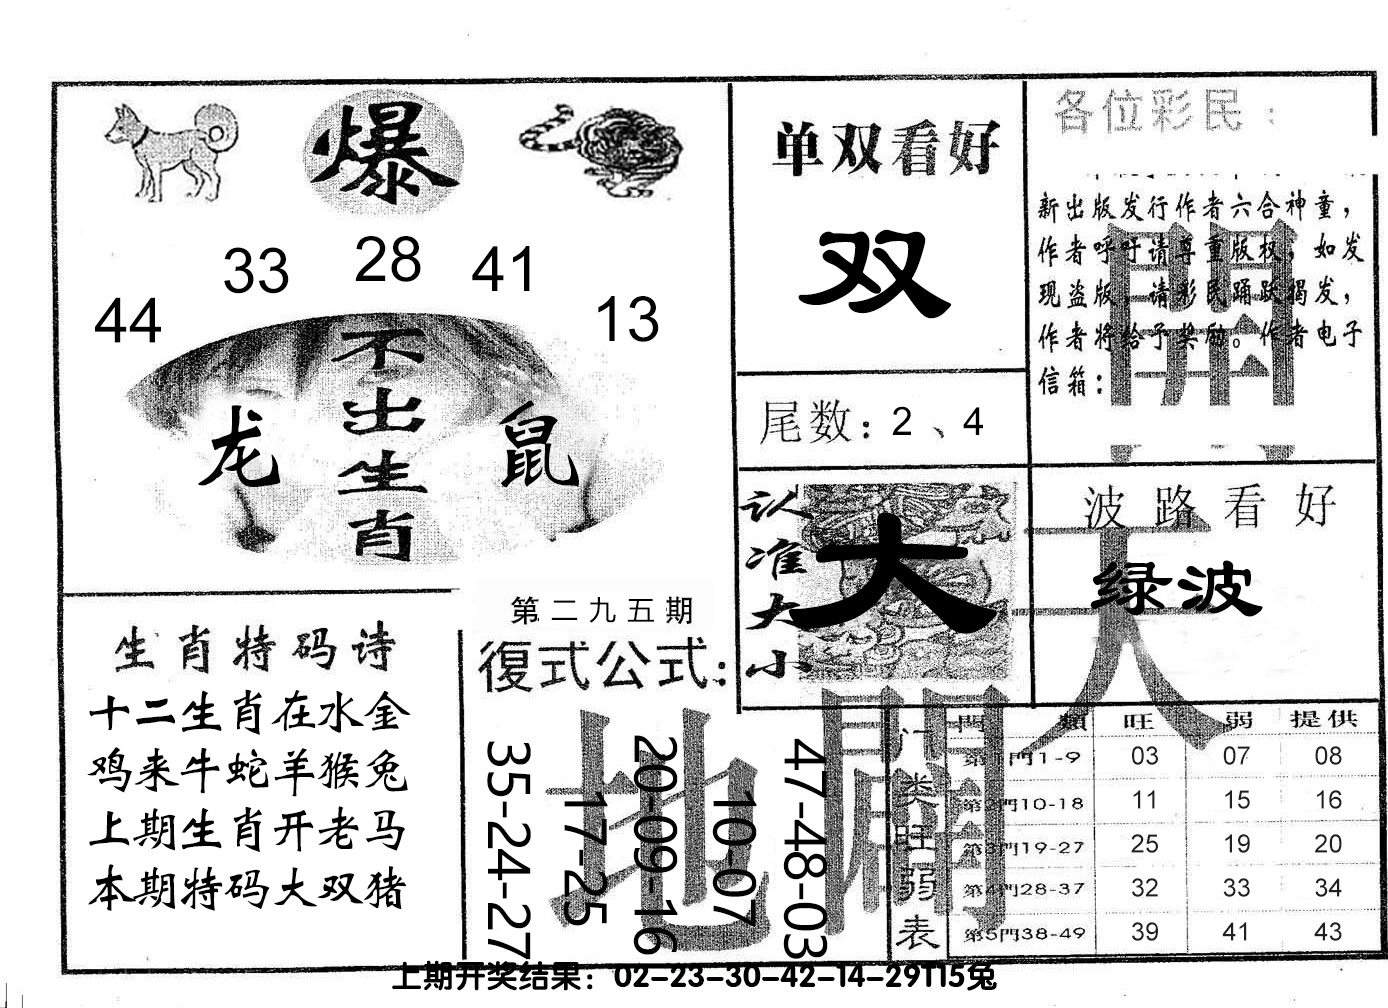 爆
44 33 28 41 13
不出生肖
龙 鼠
生肖特码诗
十二生肖在水金
鸡来牛蛇羊猴兔
上期生肖开老马
本期特码大双猪
第二九五期
復式公式：
35-24-27
17-25
20-09-16
10-07
47-48-03
单双看好
双
尾数：2、4
认准大小
大
各位彩民：
新出版发行作者六合神童，
作者呼吁请尊重版权，如发
现盗版，请彩民踊跃揭发，
作者将给予奖励。作者电子
信箱：
波路看好
绿波
天
地
開
門類 旺 弱 提供
门类旺弱表
第1門1-9 03 07 08
第2門10-18 11 15 16
第3門19-27 25 19 20
第4門28-37 32 33 34
第5門38-49 39 41 43
上期开奖结果：02-23-30-42-14-29T15兔